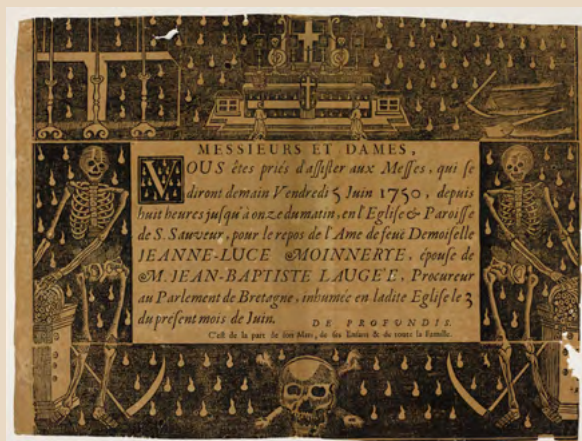 MESSIEURS ET DAMES,
VOUS êtes priés d'assister aux Messes, qui se
diront demain Vendredi 5 Juin 1750, depuis
huit heures jusqu'à onze du matin, en l'Eglise & Paroisse
de S. Sauveur, pour le repos de l'Ame de feuë Demoiselle
JEANNE-LUCE MOINNERYE, épouse de
M. JEAN-BAPTISTE LAUGE'E, Procureur
au Parlement de Bretagne, inhumée en ladite Eglise le 3
du présent mois de Juin.
DE PROFUNDIS.
C'est de la part de son Mari, de ses Enfans & de toute la Famille.